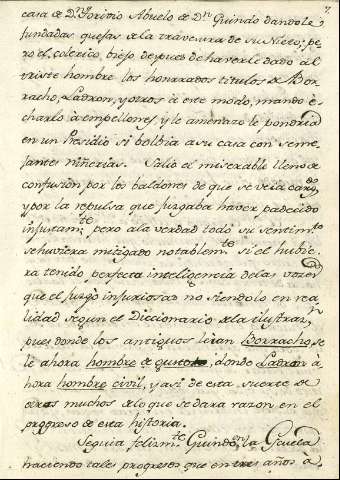 7
casa de Dⁿ Toribio Abuelo de Dⁿ Guindo dandole
fundadas quejas de la traveura de su Nieto; pe
ro el colerico viejo despues de haverle dado al
triste hombre los honrrados titulos de Bor-
racho, Ladron, y otros à este modo, mandò e-
charlo à empellones, y le amenazò le pondria
en un Presidio si bolbia a su casa con seme-
jantes niñerias. Salio el miserable lleno de
confusion por los baldones de que se veìa cargᵈᵒ
y por la repulsa que juzgaba haver padecido
injustamᵗᵉ pero ala verdad todo su sentimᵗᵒ
se huviera mitigado notablemᵗᵉ si el hubie-
ra tenido perfecta inteligencia de las vozes
que el juzgò injuriosas no siendolo en rea-
lidad segun el Diccionario de la ilustraⁿ
pues donde los antiguos leìan Borracho se
lè ahora hombre de gusto, donde Ladron à
hora hombre civil, y asi de esta suerte de
otros muchos de lo que se dara razon en el
progreso de esta historia.
Seguia felizmᵗᵉ Guindo en la Escuela
haciendo tales progresos que en tres años à